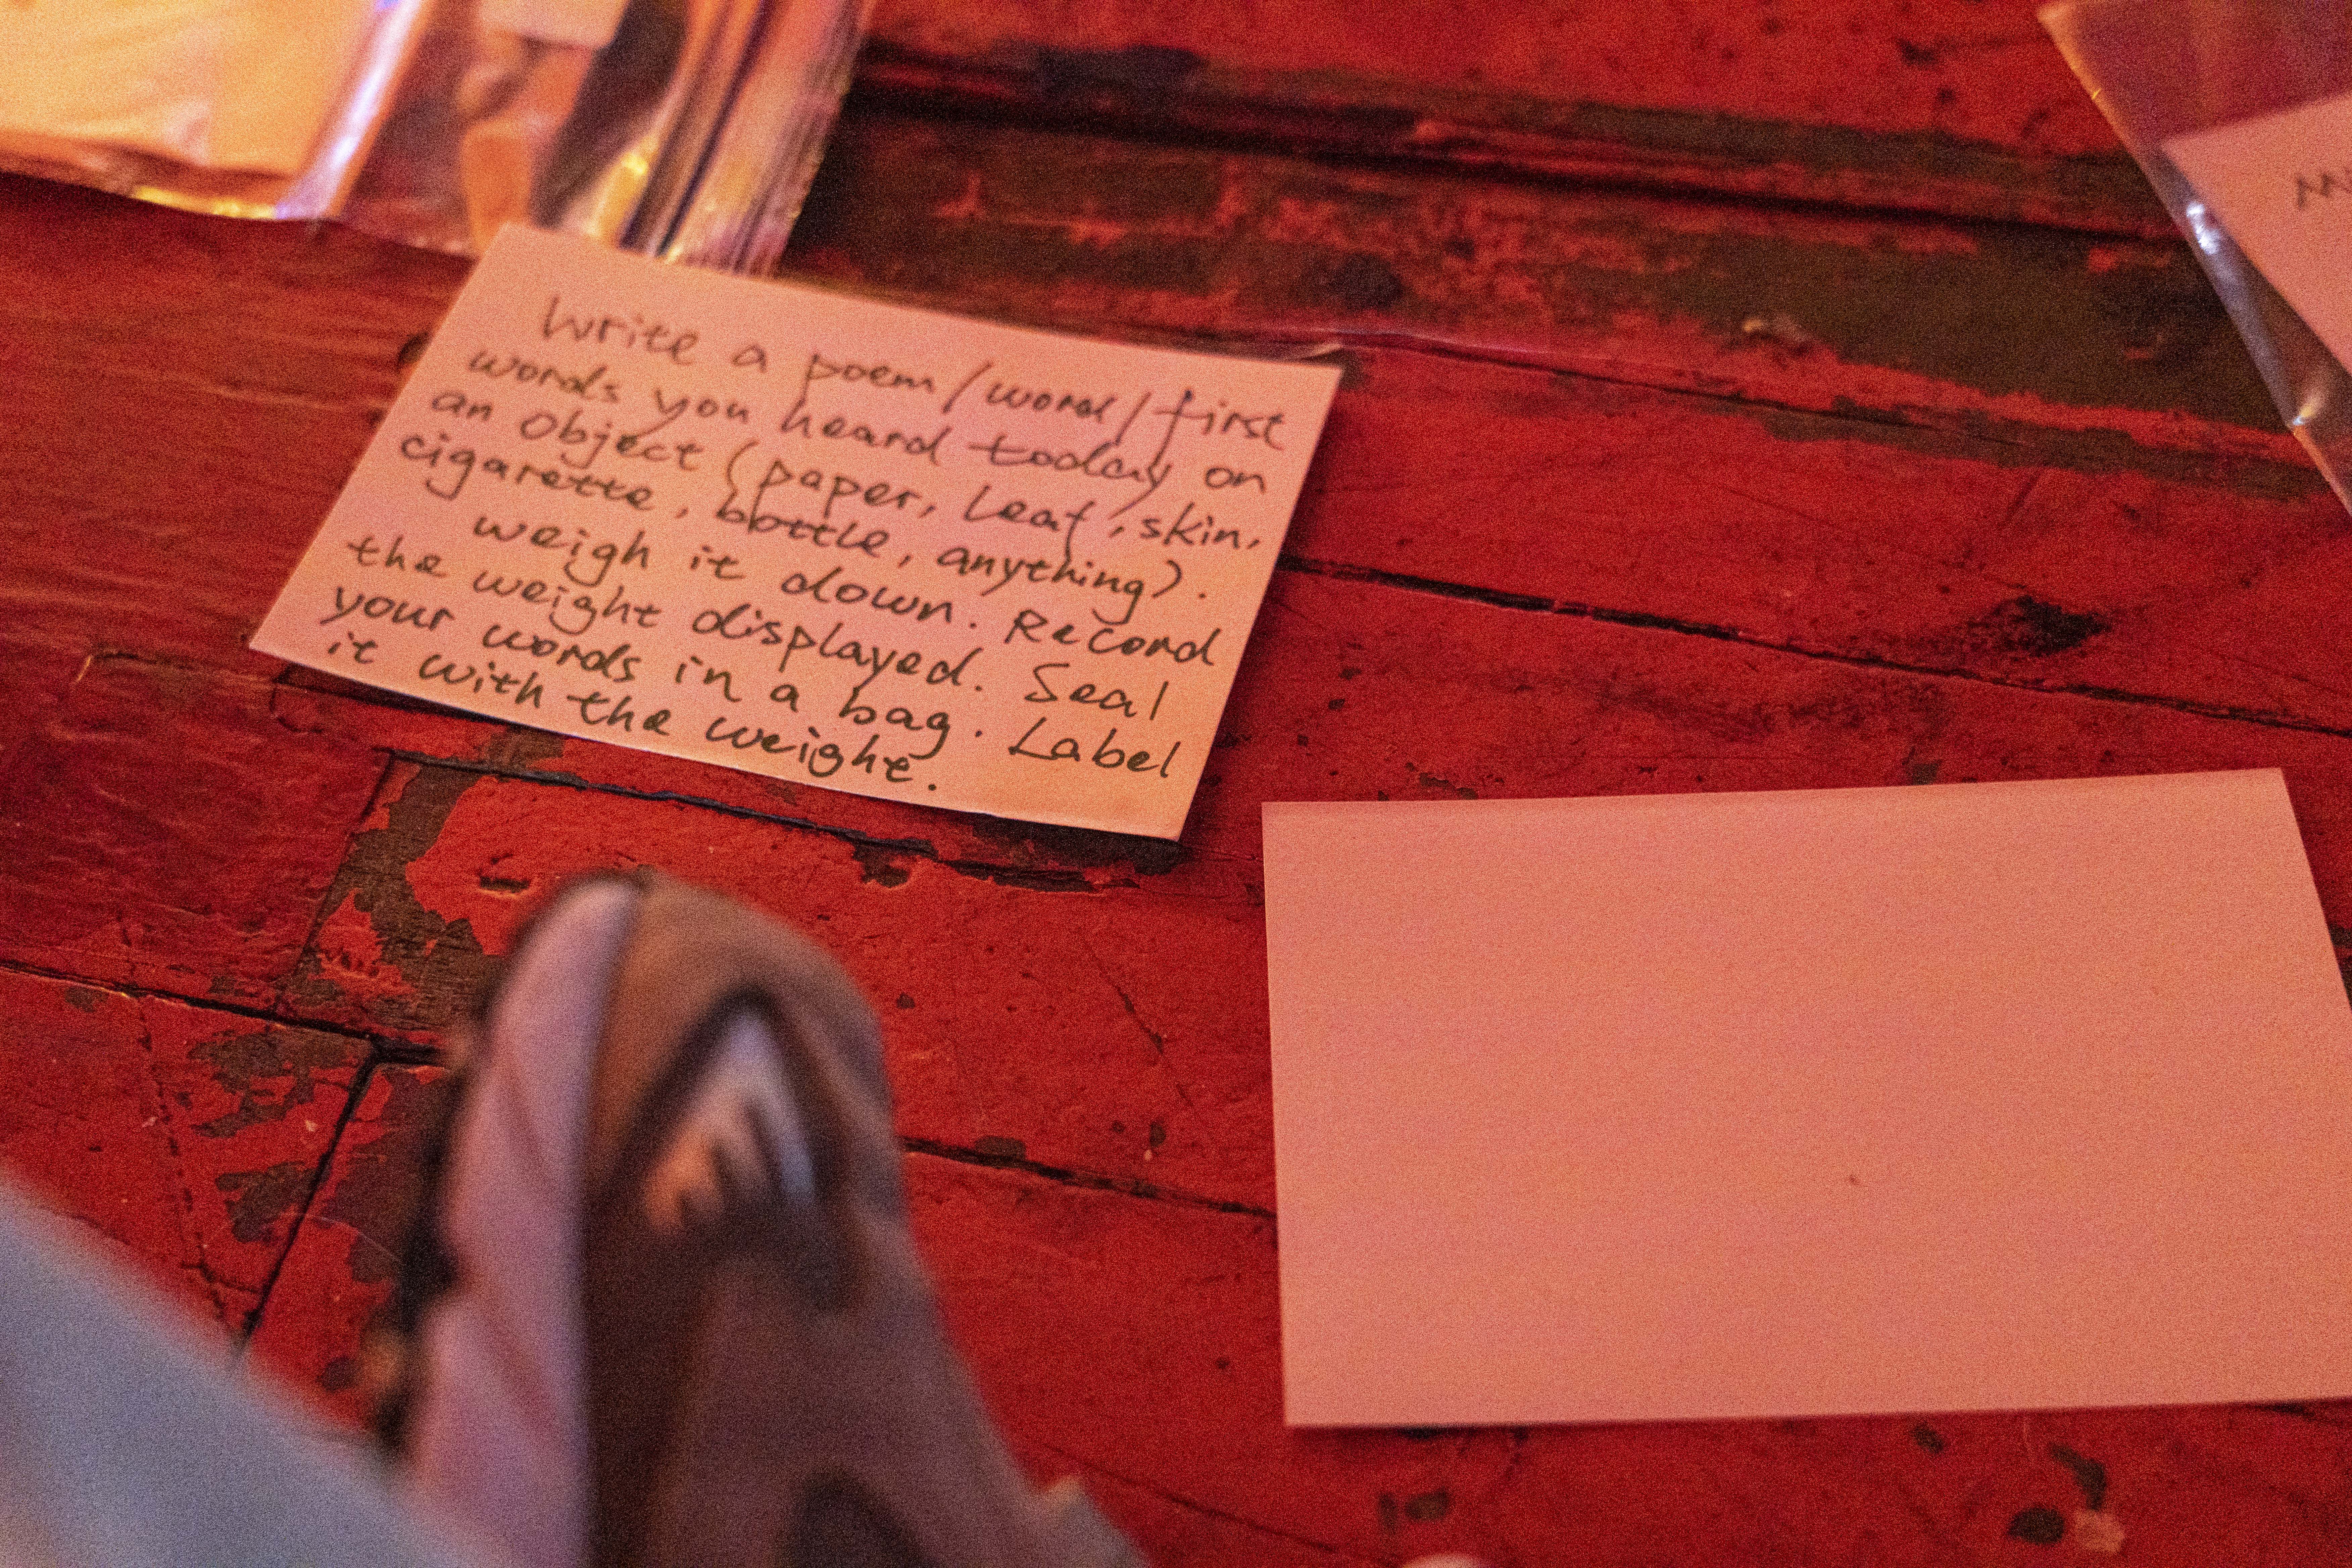 Write a poem/word/first
words you heard today on
an object (paper, leaf, skin,
cigarette, bottle, anything).
weigh it down. Record
the weight displayed. Seal
your words in a bag. Label
it with the weight.